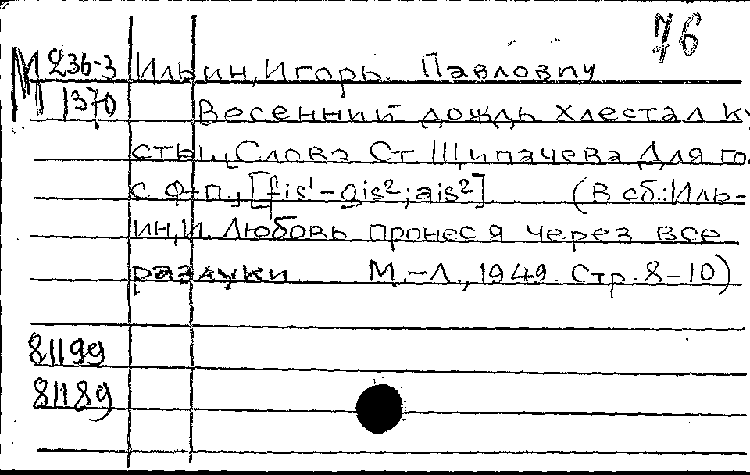 76
М 236-3 Ильин, Игорь Павлович
1370 Весенний дождь хлестал ку
сты... Слова Ст. Щипачева Для го
с ф-п., [fis¹-gis²; ais²] (В сб.: Иль-
ин, И. Любовь пронес я через все
разлуки М.-Л., 1949. Стр. 8-10)
81199
81189